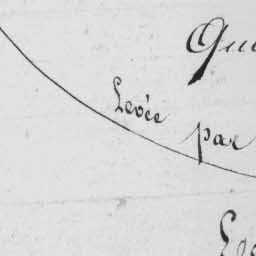 Qu
Levée par
Le